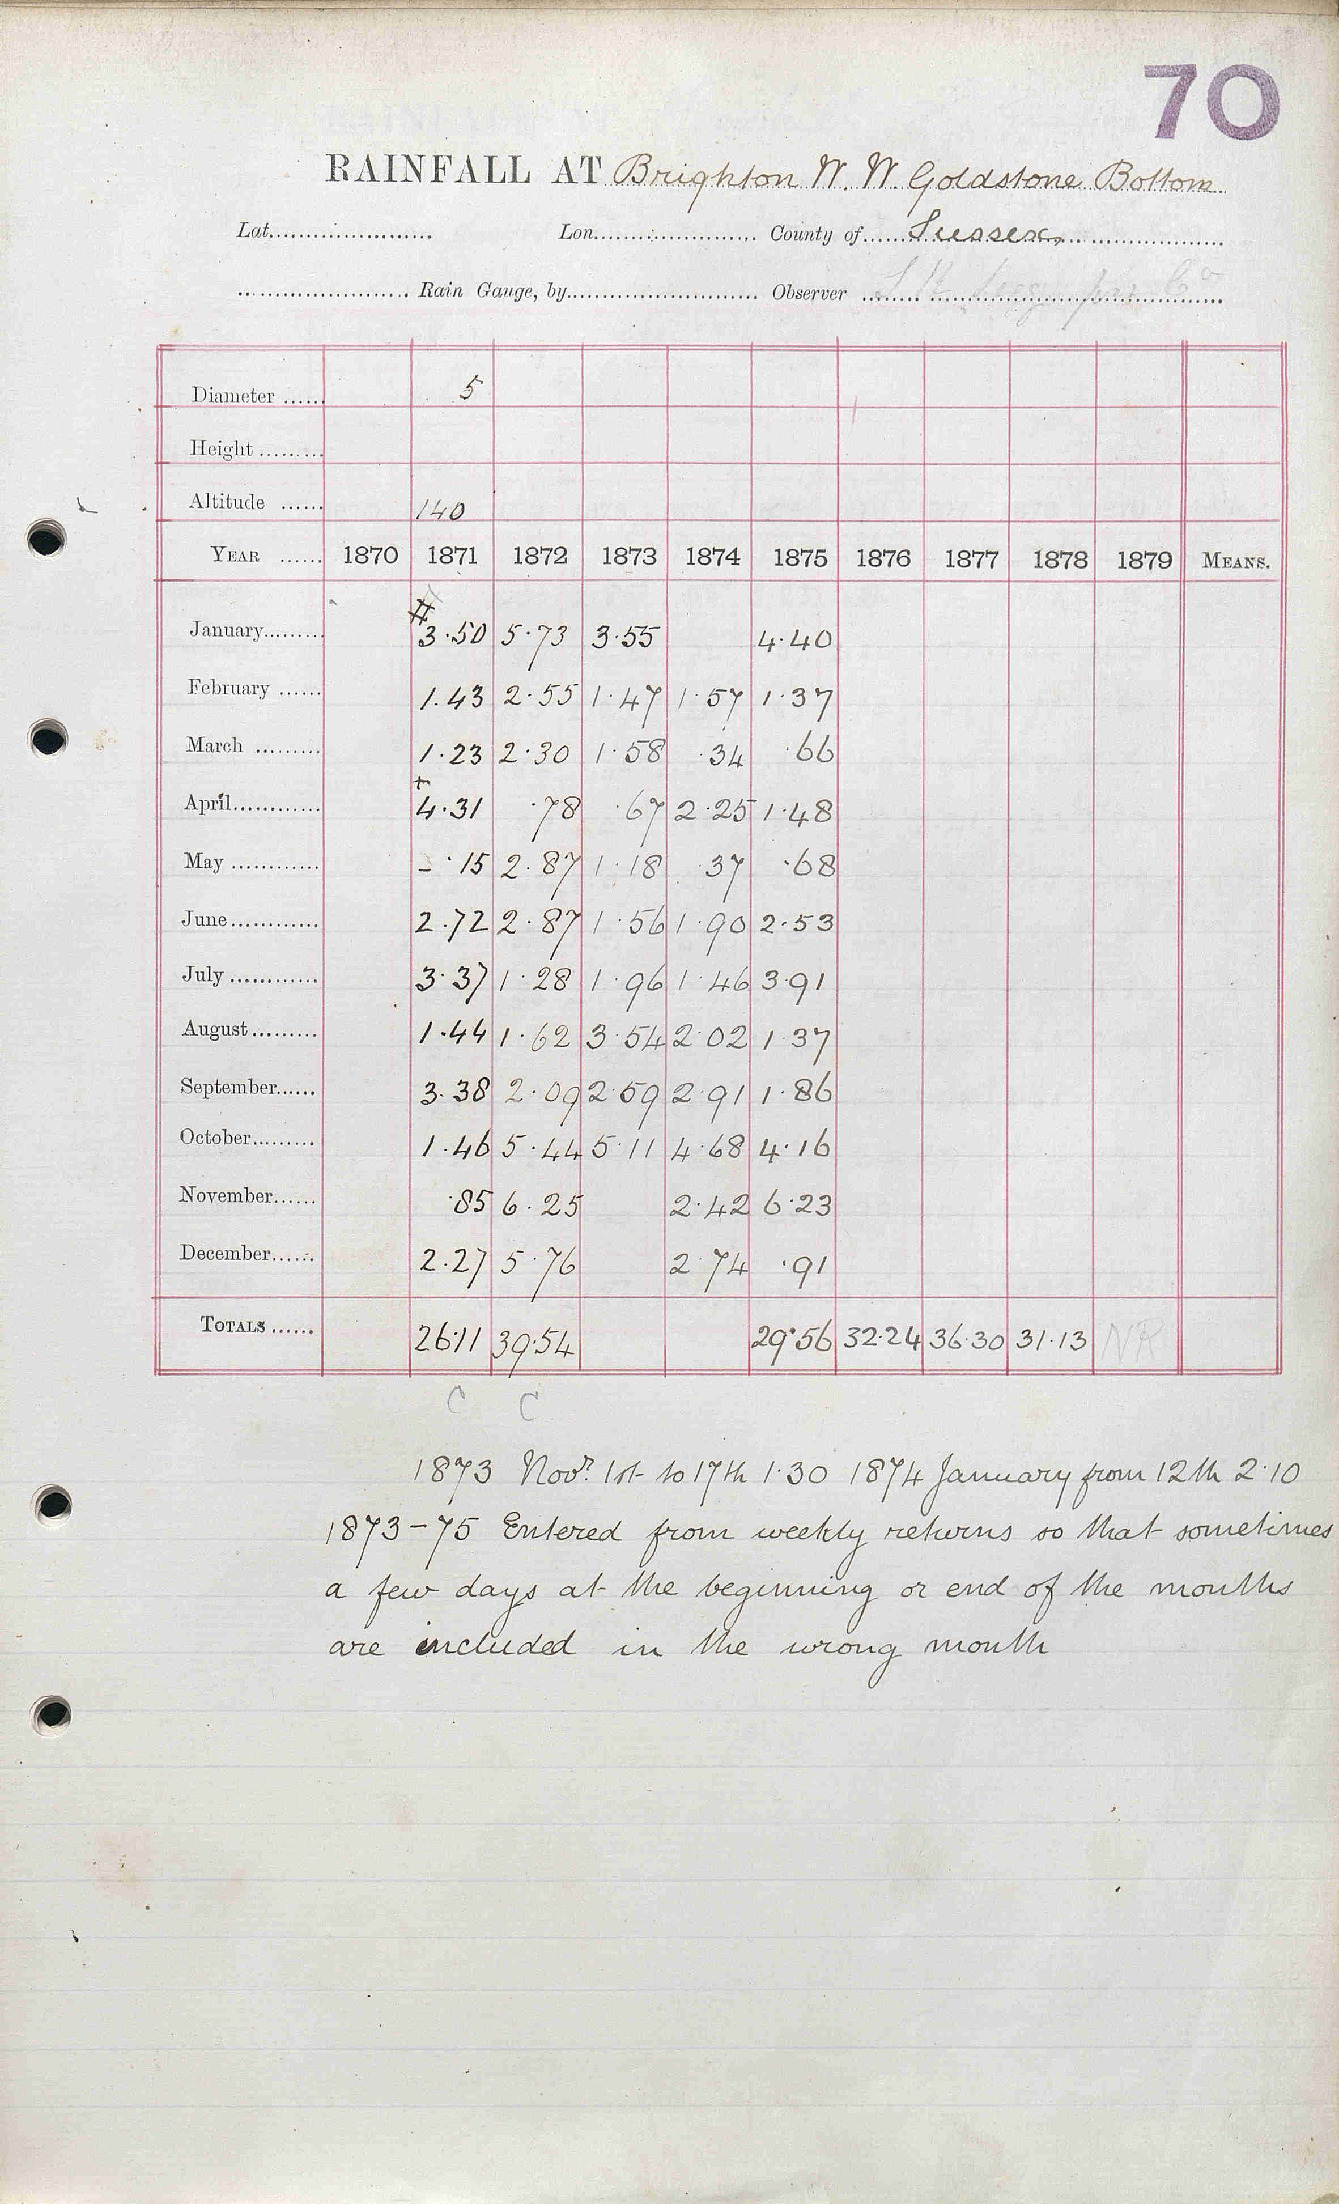 70
RAINFALL AT Brighton W. W. Goldstone Bottom
Lat. Lon. County of Sussex
Rain Gauge, by Observer
Diameter 5
Height
Altitude 140
YEAR 1870 1871 1872 1873 1874 1875 1876 1877 1878 1879 MEANS.
January 3.50 5.73 3.55 4.40
February 1.43 2.55 1.47 1.57 1.37
March 1.23 2.30 1.58 .34 .66
+
April 4.31 .78 .67 2.25 1.48
May - .15 2.87 1.18 .37 .68
June 2.72 2.87 1.56 1.90 2.53
July 3.37 1.28 1.96 1.46 3.91
August 1.44 1.62 3.54 2.02 1.37
September 3.38 2.09 2.59 2.91 1.86
October 1.46 5.44 5.11 4.68 4.16
November .85 6.25 2.42 6.23
December 2.27 5.76 2.74 .91
TOTALS 26.11 39.54 29.56 32.24 36.30 31.13 NR
C C
1873 Novr. 1st to 17th 1.30 1874 January from 12th 2.10
1873-75 Entered from weekly returns so that sometimes
a few days at the beginning or end of the months
are included in the wrong month